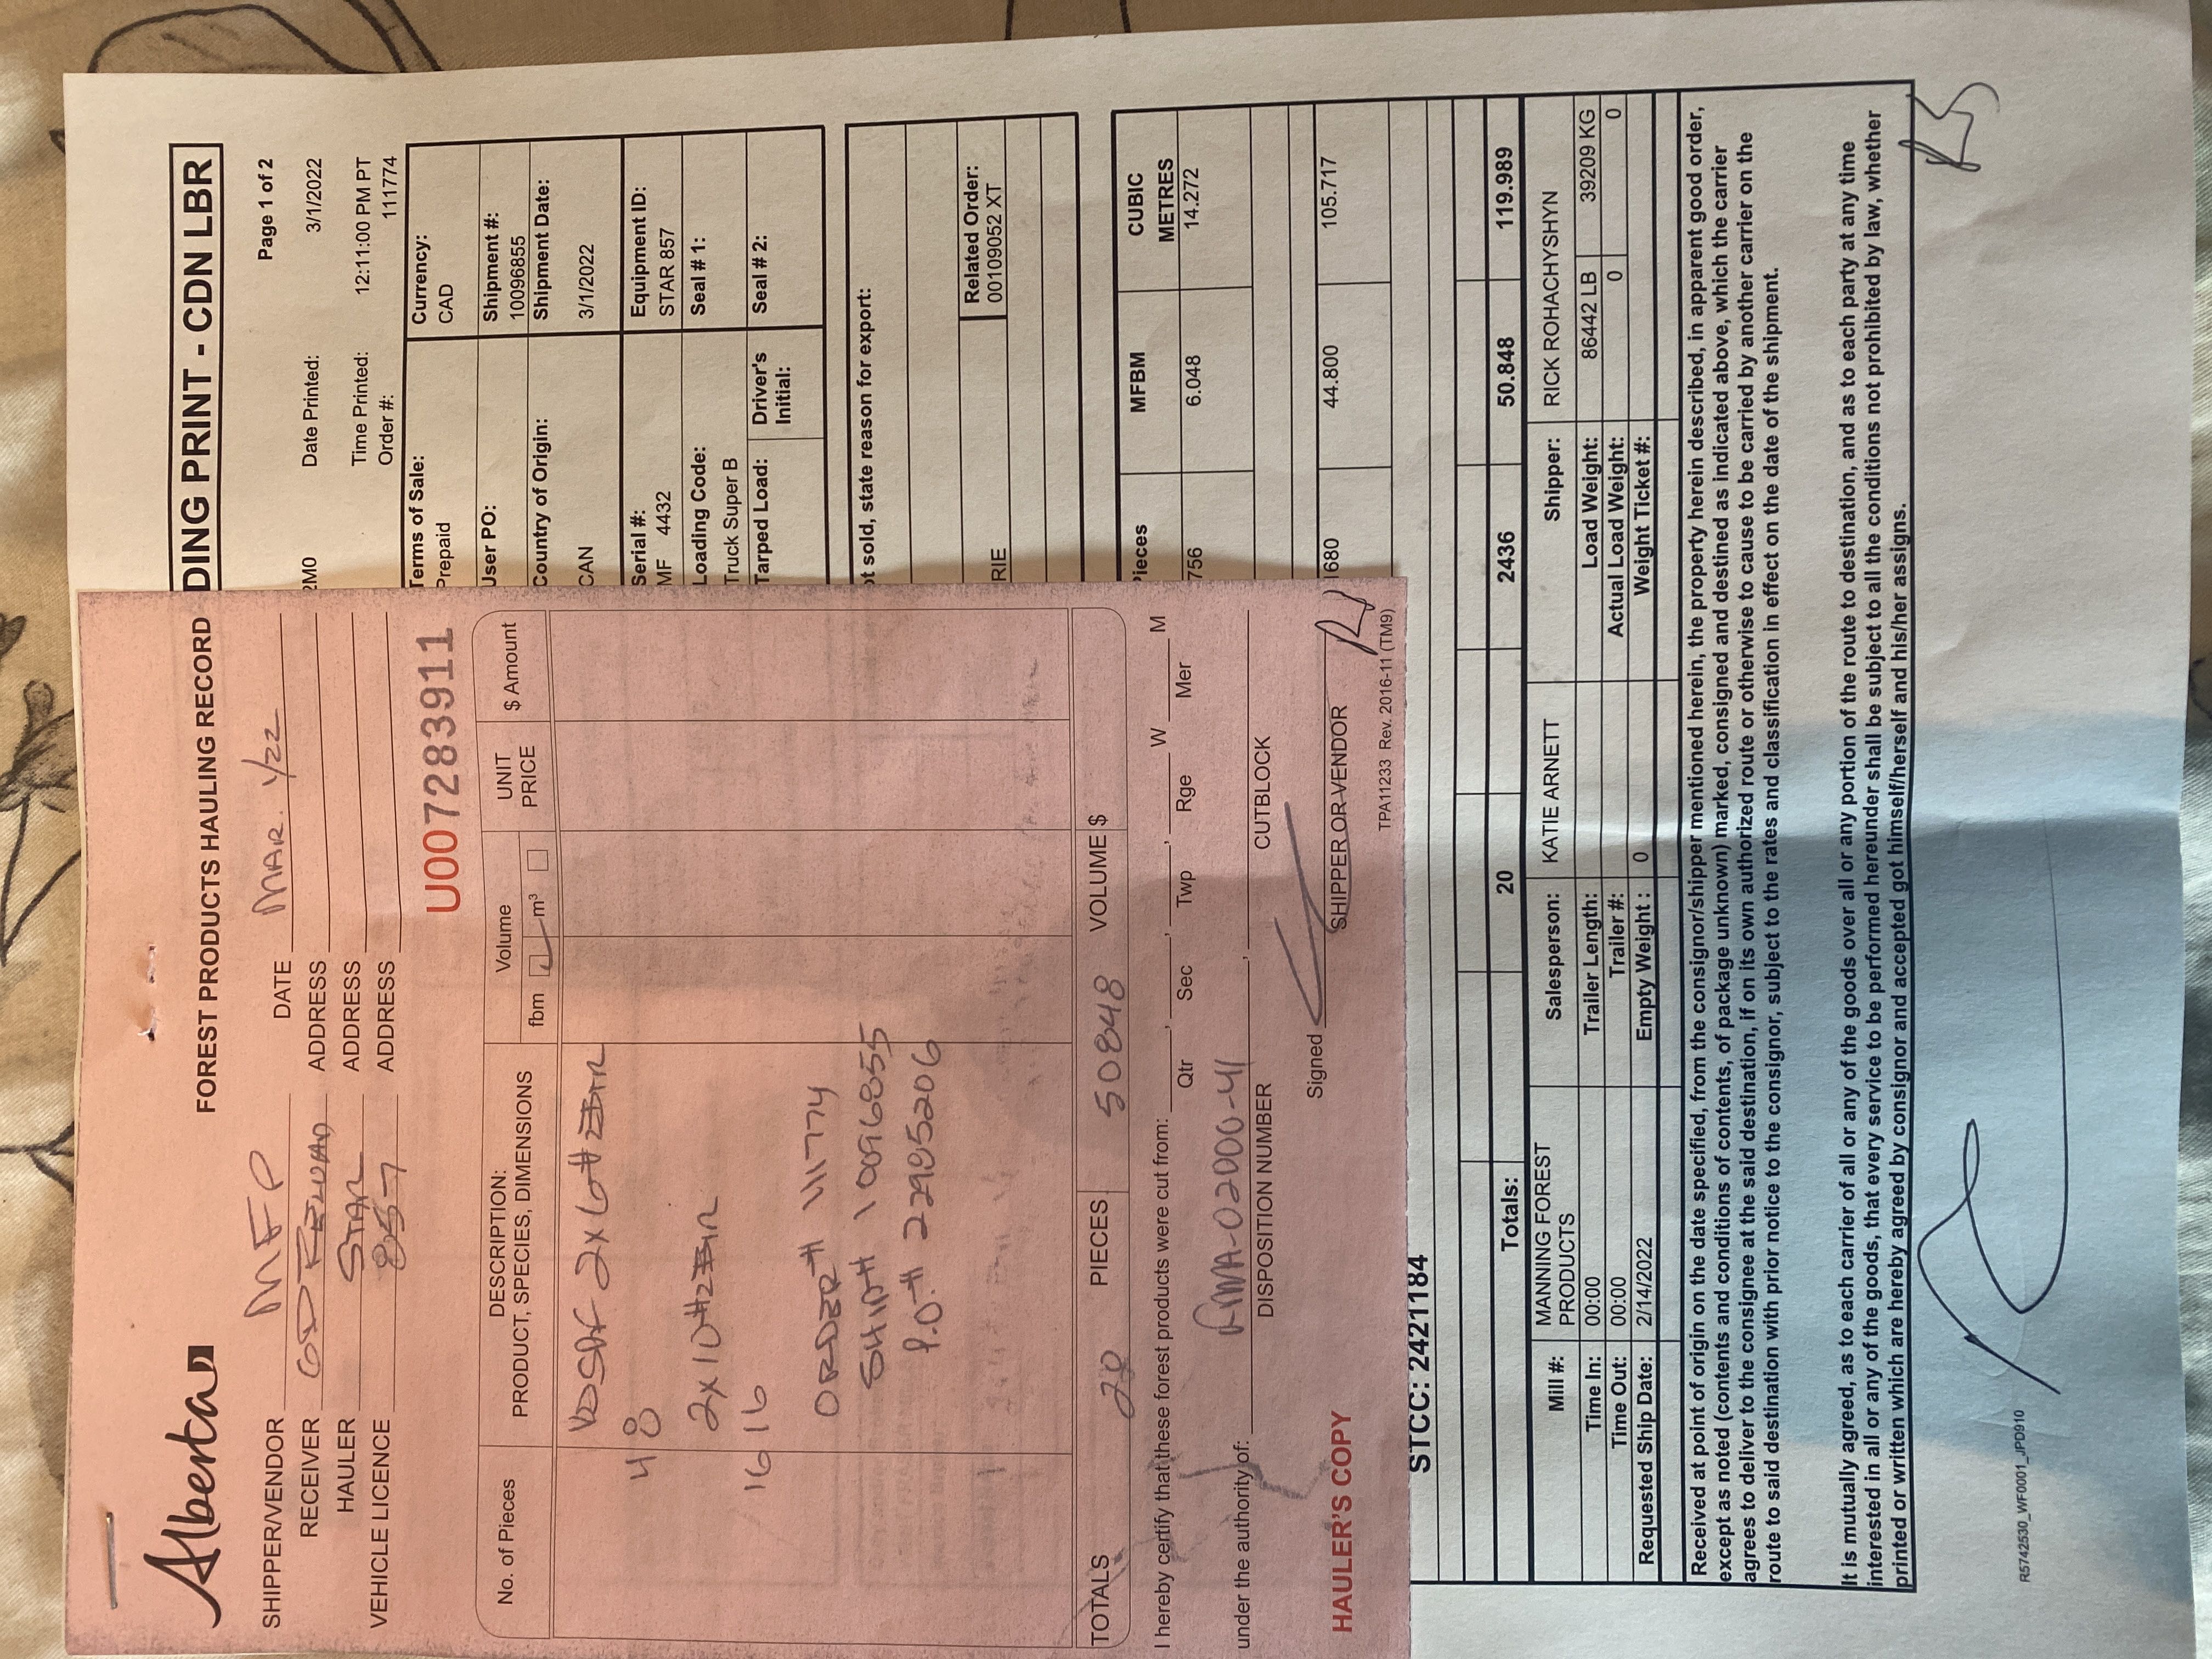 Alberta
FOREST PRODUCTS HAULING RECORD
SHIPPER/VENDOR MFP
DATE MAR. 1/22
RECEIVER GD RELOAD
ADDRESS
HAULER STAR
ADDRESS
VEHICLE LICENCE 857
ADDRESS
U007283911
No. of Pieces
DESCRIPTION:
PRODUCT, SPECIES, DIMENSIONS
Volume
fbm
m³
UNIT
PRICE
$ Amount
KDSPF 2x6 #2&BTR
4 8
2x10 #2&BTR
16 16
ORDER# 111774
SHIP# 10096855
P.O.# 22985206
TOTALS 20 PIECES 50848 VOLUME $
I hereby certify that these forest products were cut from: , , , W M
Qtr Sec Twp Rge Mer
under the authority of: FMA-02000-41 ,
DISPOSITION NUMBER CUTBLOCK
Signed
SHIPPER OR VENDOR
HAULER'S COPY
TPA11233 Rev. 2016-11 (TM9)
DING PRINT - CDN LBR
Page 1 of 2
2M0
Date Printed: 3/1/2022
Time Printed: 12:11:00 PM PT
Order #: 111774
Terms of Sale:
Prepaid
Currency:
CAD
User PO:
Shipment #:
10096855
Country of Origin:
CAN
Shipment Date:
3/1/2022
Serial #:
MF 4432
Equipment ID:
STAR 857
Loading Code:
Truck Super B
Seal # 1:
Tarped Load:
Driver's
Initial:
Seal # 2:
ot sold, state reason for export:
RIE
Related Order:
00109052 XT
Pieces MFBM CUBIC
METRES
756 6.048 14.272
1680 44.800 105.717
STCC: 2421184
Totals: 20 2436 50.848 119.989
Mill #: MANNING FOREST
PRODUCTS
Salesperson: KATIE ARNETT
Shipper: RICK ROHACHYSHYN
Time In: 00:00
Trailer Length:
Load Weight: 86442 LB 39209 KG
Time Out: 00:00
Trailer #:
Actual Load Weight: 0 0
Requested Ship Date: 2/14/2022
Empty Weight : 0
Weight Ticket #:
Received at point of origin on the date specified, from the consignor/shipper mentioned herein, the property herein described, in apparent good order,
except as noted (contents and conditions of contents, of package unknown) marked, consigned and destined as indicated above, which the carrier
agrees to deliver to the consignee at the said destination, if on its own authorized route or otherwise to cause to be carried by another carrier on the
route to said destination with prior notice to the consignor, subject to the rates and classification in effect on the date of the shipment.
It is mutually agreed, as to each carrier of all or any of the goods over all or any portion of the route to destination, and as to each party at any time
interested in all or any of the goods, that every service to be performed hereunder shall be subject to all the conditions not prohibited by law, whether
printed or written which are hereby agreed by consignor and accepted got himself/herself and his/her assigns.
R5742530_WF0001_JPD910